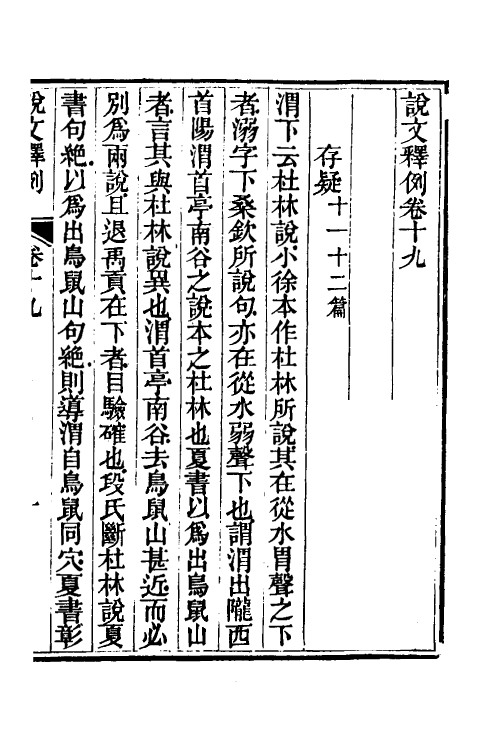 說文釋例卷十九
存疑十一十二篇
渭下云杜林說小徐本作杜林所說其在從水胃聲之下
者溺字下桑欽所說句亦在從水弱聲下也謂渭出隴西
首陽渭首亭南谷之說本之杜林也夏書以爲出鳥鼠山
者言其與杜林說異也渭首亭南谷去鳥鼠山甚近而必
別爲兩說且退禹貢在下者目驗確也段氏斷杜林說夏
書句絕以爲出鳥鼠山句絕則導渭自鳥鼠同穴夏書彰
說文釋例 卷十九 一